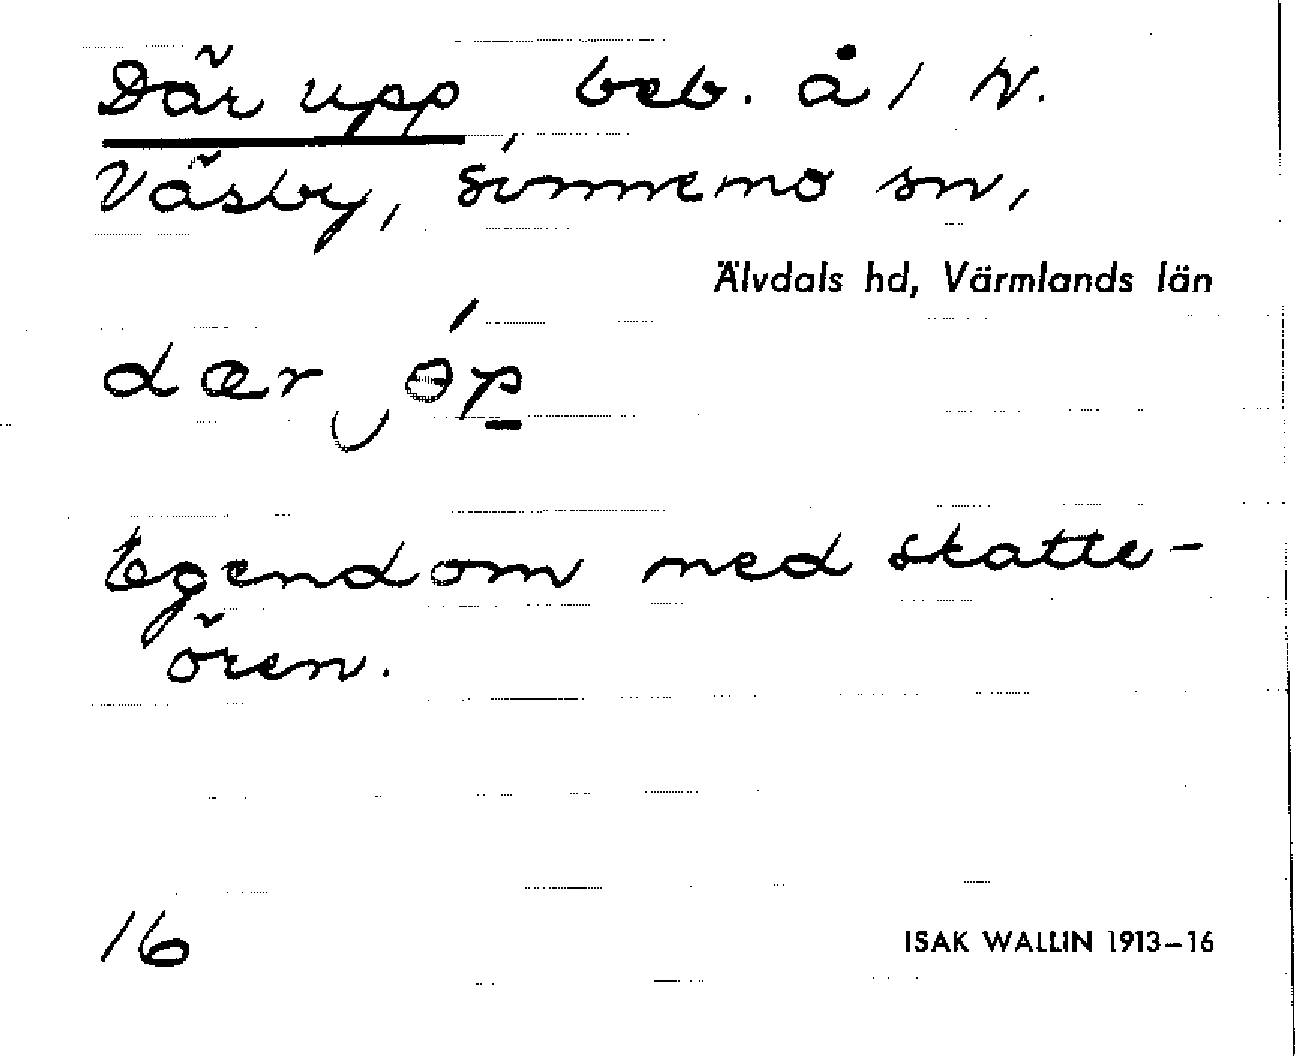 Där upp beb. å 1 N.
Väsby, Sunnemo sn,
Älvdals hd, Värmlands län
dær‿óp
Egendom med skatte-
ören.
16
ISAK WALLIN 1913-16